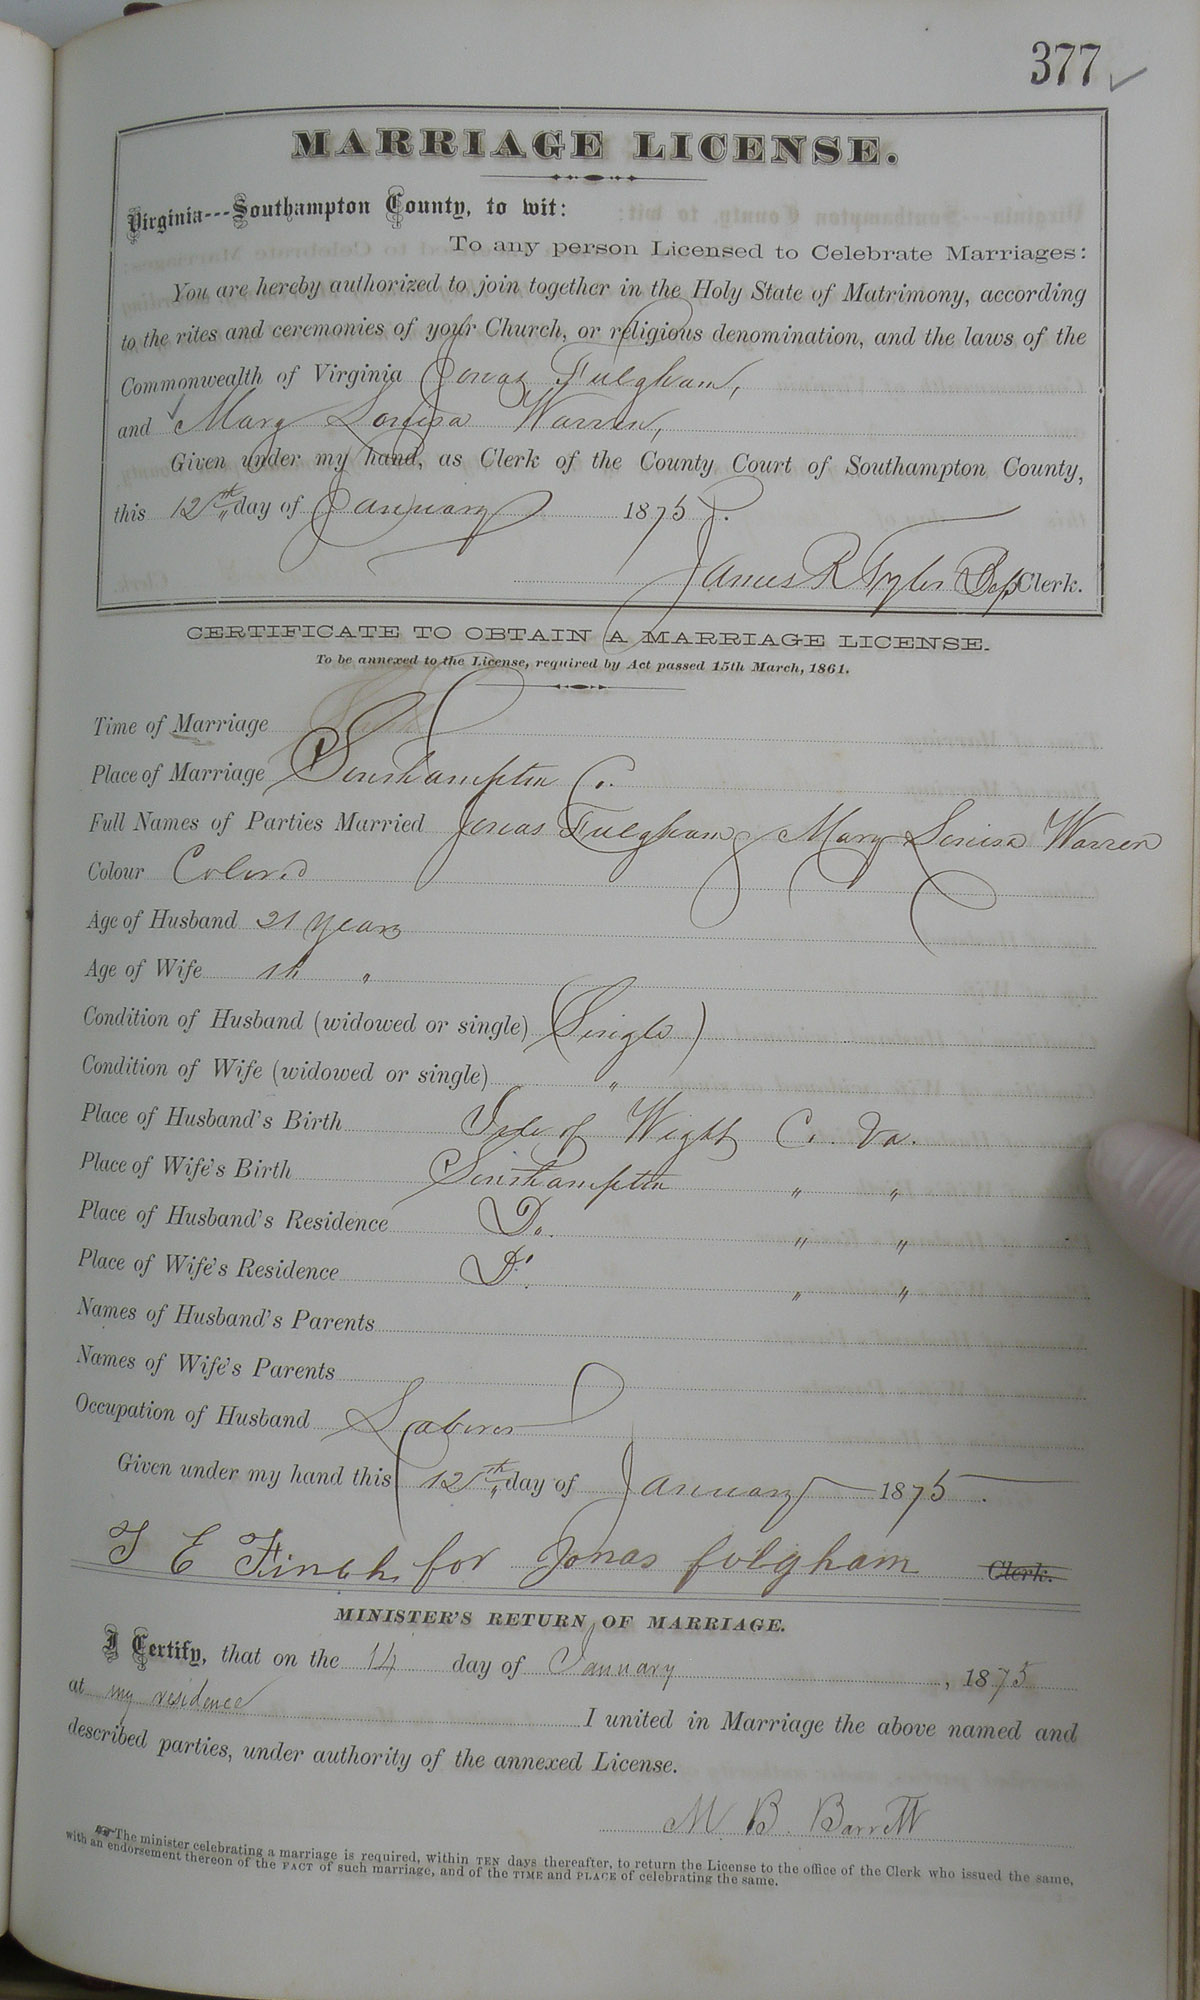 377 ✓
MARRIAGE LICENSE.
Virginia---Southampton County, to wit:
To any person Licensed to Celebrate Marriages:
You are hereby authorized to join together in the Holy State of Matrimony, according
to the rites and ceremonies of your Church, or religious denomination, and the laws of the
Commonwealth of Virginia Jonas Fulgham,
and Mary Louisa Warren,
Given under my hand, as Clerk of the County Court of Southampton County,
this 12th day of January 1875.
James R Tyler Dep Clerk.
CERTIFICATE TO OBTAIN A MARRIAGE LICENSE.
To be annexed to the License, required by Act passed 15th March, 1861.
Time of Marriage
Place of Marriage Southampton Co.
Full Names of Parties Married Jonas Fulgham & Mary Louisa Warren
Colour Colored
Age of Husband 21 years
Age of Wife "
Condition of Husband (widowed or single) (Single)
Condition of Wife (widowed or single) "
Place of Husband's Birth Isle of Wight Co. Va.
Place of Wife's Birth Southampton " "
Place of Husband's Residence Do. " "
Place of Wife's Residence Do " "
Names of Husband's Parents
Names of Wife's Parents
Occupation of Husband Laborer
Given under my hand this 12th day of January 1875.
T E Finch for Jonas fulgham Clerk.
MINISTER'S RETURN OF MARRIAGE.
I Certify, that on the 14 day of January, 1875
at my residence I united in Marriage the above named and
described parties, under authority of the annexed License.
M. B. Barrett
The minister celebrating a marriage is required, within TEN days thereafter, to return the License to the office of the Clerk who issued the same,
with an endorsement thereon of the FACT of such marriage, and of the TIME and PLACE of celebrating the same.